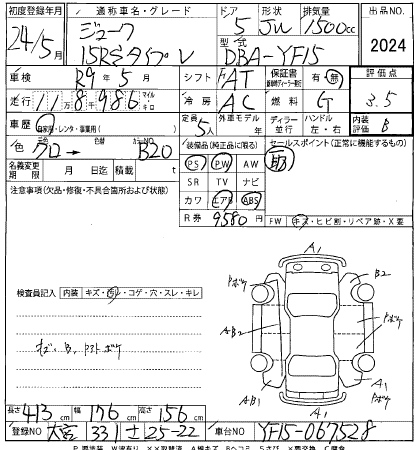 初度登録年月 通称車名・グレード ドア 形状 排気量 出品NO.
24/5月 ジューク 5 JW 1500cc
15RSタイプV 型式 DBA-YF15 2024
車検 R9年5月 シフト FAT 保証書 有・無 評価点
走行 118986 マイル キロ 冷房 AC 燃料 G 3.5
車歴 自家用・レンタ・事業用( ) 定員 5人 外車モデル 年 ディーラー 並行 ハンドル 左・右 内装評価 B
色 クロ→ カラーNO. B20
装備品(純正品に限る) セールスポイント(正常に機能するもの)
PS PW AW
名義変更期限 月 日迄 積載 t
SR TV ナビ
注意事項(欠品・修復・不具合箇所および状態)
カワ エアB ABS
R券 9580円
FW キズ・ヒビ割・リペア跡・X要
検査員記入 内装 キズ・汚レ・コゲ・穴・スレ・キレ
A1
B2
Pボケ
Pボケ
AB2
Pボケ
AB1
A1
A1
長さ 413cm 幅 176cm 高さ 156cm
登録NO 大宮 331 さ 25-22 車台NO YF15-067528